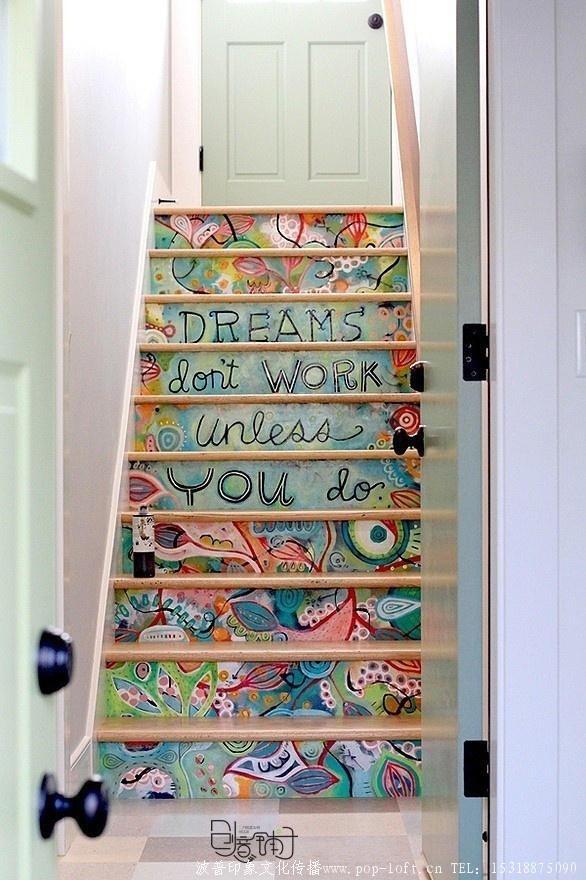 DREAMS
don't WORK
unless
YOU do.
波普印象文化传播www.pop-loft.cn TEL: 15318875090